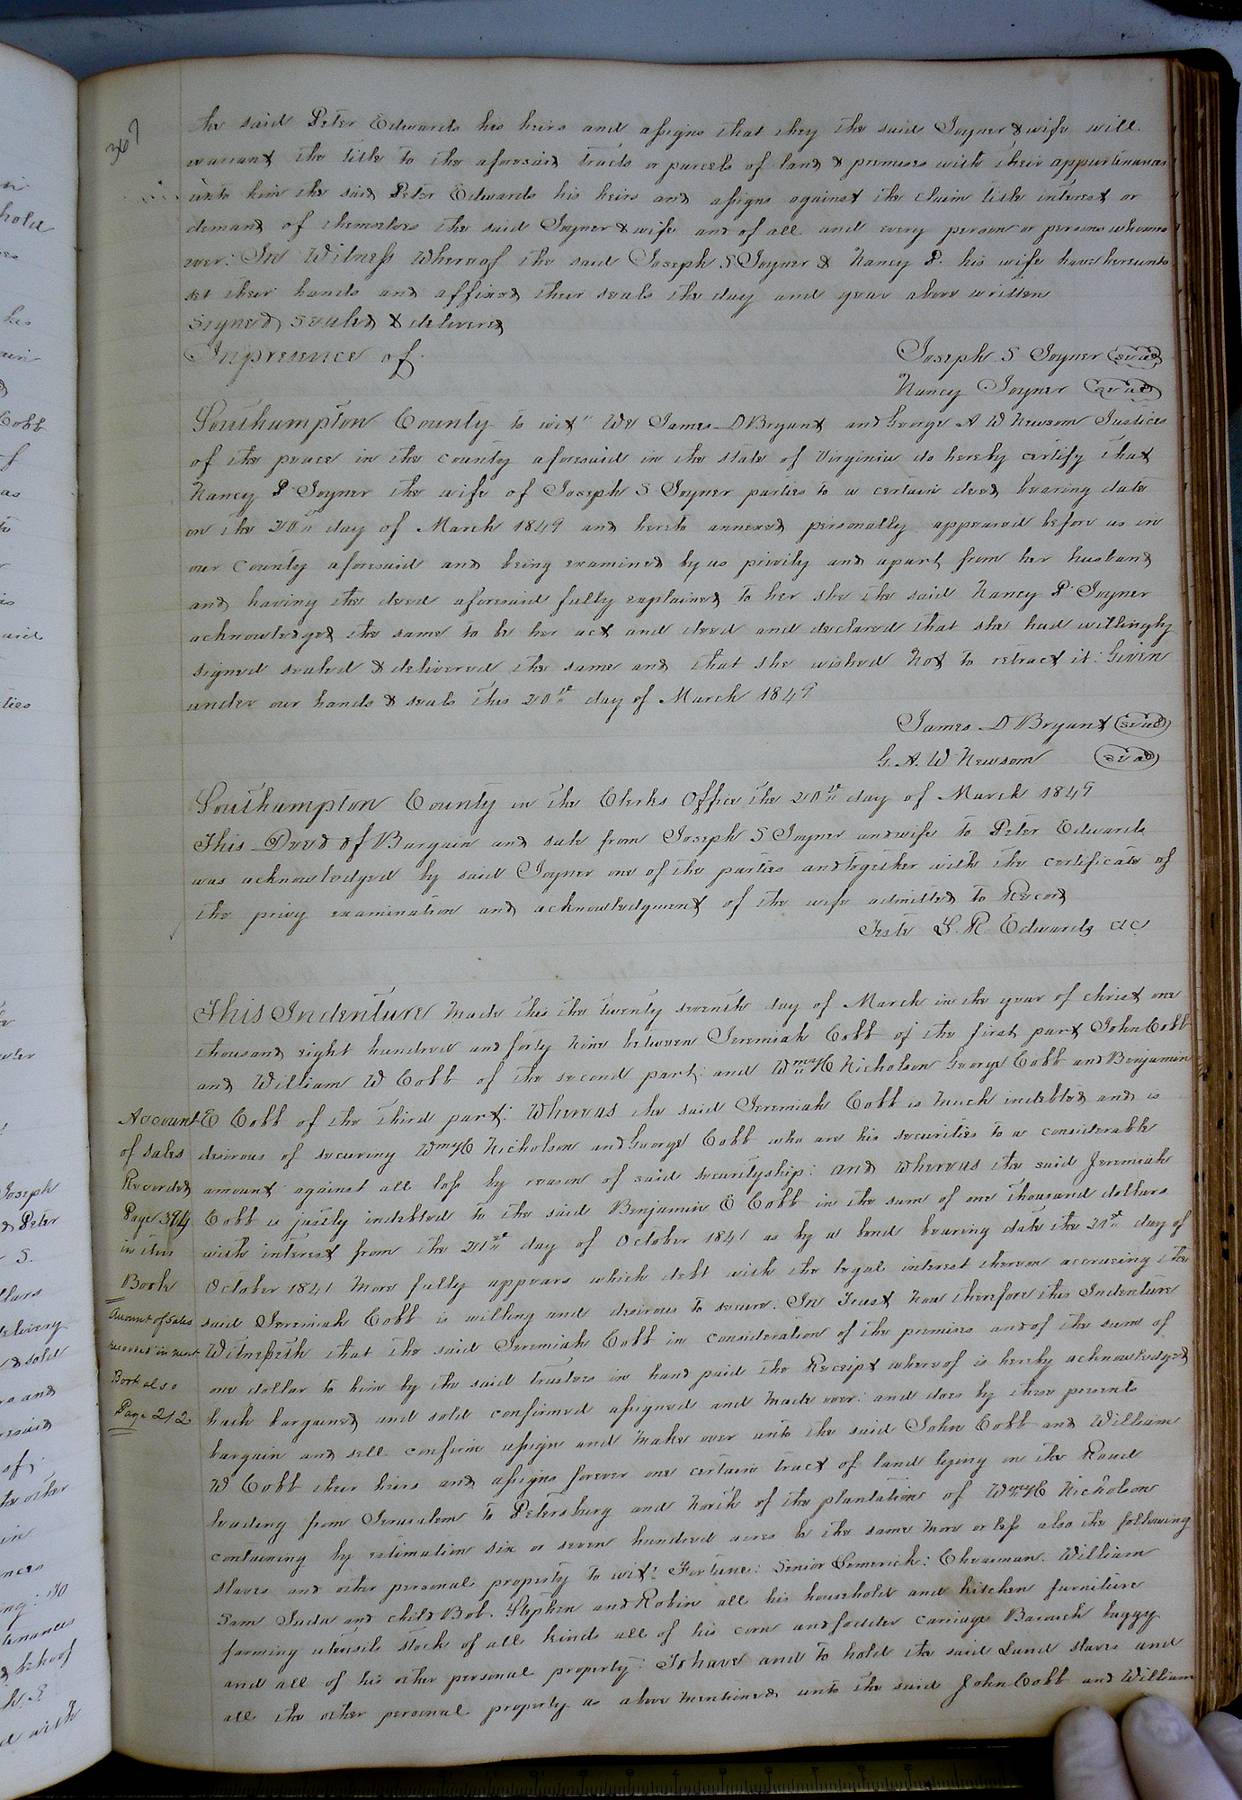 367
the said Peter Edwards his heirs and assigns that they the said Joyner & wife will
warrant the title to the aforesaid tracts or parcels of land & premises with their appurtenances
unto him the said Peter Edwards his heirs and assigns against the claim title interest or
demand of themselves the said Joyner & wife and of all and every person or persons whomso
ever: In Witness Whereof the said Joseph S Joyner & Nancy P. his wife have hereunto
set their hands and affixed their seals the day and year above written
Signed Sealed & delivered
In presence of
Joseph S Joyner (Seal)
Nancy Joyner (Seal)
Southampton County to wit" We James D Bryant and George A W Newsom Justices
of the peace in the County aforesaid in the state of Virginia do hereby certify that
Nancy P Joyner the wife of Joseph S Joyner parties to a certain deed bearing date
on the 20th day of March 1849 and hereto annexed personally appeared before us in
our County aforesaid and being examined by us privily and apart from her husband
and having the deed aforesaid fully explained to her she the said Nancy P Joyner
acknowledged the same to be her act and deed and declared that she had willingly
signed sealed & delivered the same and that she wished not to retract it: Given
under our hands & seals this 20th day of March 1849
James D Bryant (Seal)
G. A. W Newsom (Seal)
Southampton County in the Clerks Office the 20th day of March 1849
This Deed of Bargain and sale from Joseph S Joyner and wife to Peter Edwards
was acknowledged by said Joyner one of the parties and together with the certificate of
the privy examination and acknowledgment of the wife admitted to Record
Teste L. R Edwards CC
This Indenture Made this the twenty seventh day of March in the year of christ one
thousand eight hundred and forty Nine between Jeremiah Cobb of the first part John Cobb
and William W Cobb of the second part: and Wm H Nicholson George Cobb and Benjamin
E Cobb of the third part: Whereas the said Jeremiah Cobb is Much indebted and is
desirous of securing Wm H Nicholson and George Cobb who are his securities to a considerable
amount against all loss by reason of said securityship: and whereas the said Jeremiah
Cobb is justly indebted to the said Benjamin E Cobb in the sum of one thousand dollars
with interest from the 21st day of October 1841 as by a bond bearing date the 21st day of
October 1841 More fully appears which debt with the legal interest thereon accrueing the
said Jeremiah Cobb is willing and desirous to secure. In Trust Now therefore this Indenture
Witnesseth that the said Jeremiah Cobb in consideration of the premises and of the sum of
one dollar to him by the said trustees in hand paid the Receipt whereof is hereby acknowledged
hath bargained and sold confirmed assigned and made over: and does by these presents
bargain and sell confirm assign and make over unto the said John Cobb and William
W Cobb their heirs and assigns forever one certain tract of land lying on the Road
leading from Jerusalem to Petersburg and North of the plantation of Wm H Nicholson
containing by estimation six or seven hundred acres be the same more or less also the following
slaves and other personal property to wit: Fortune: Senior Limerick: Chearman. William
Sam Juda and child Bob. Stephen and Robin all his household and kitchen furniture
farming utensils stock of all kinds all of his corn and fodder carriage Barouch buggy
and all of his other personal property: To have and to hold the said Land slaves and
all the other personal property as above mentioned unto the said John Cobb and William
Account
of sales
Recorded
Page 394
in this
Book
Account of Sales
Book also
Page 212